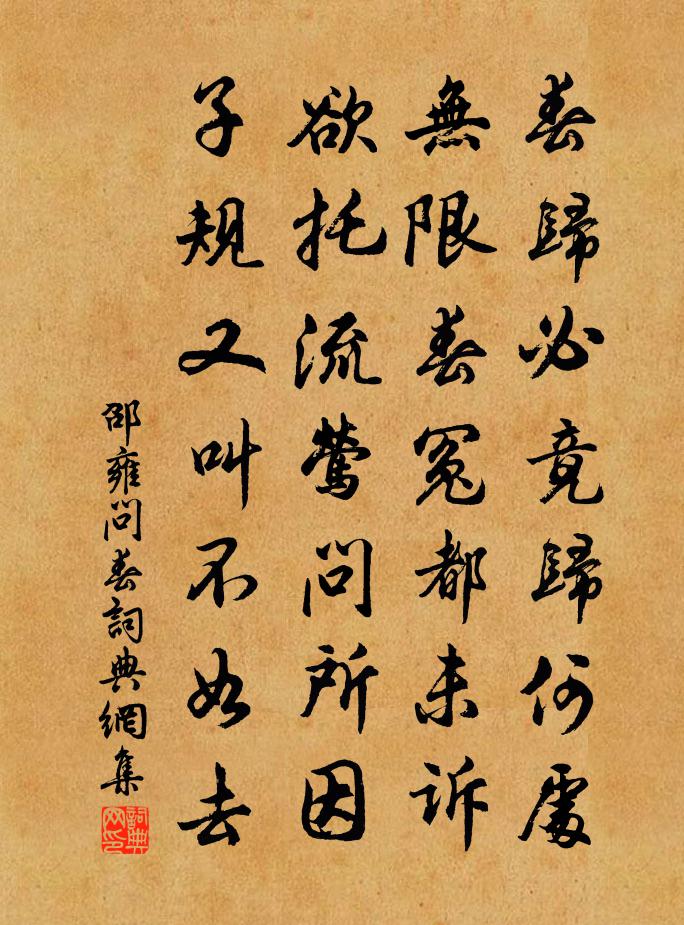 春歸必竟歸何處
無限春冤都未訴
欲托流鶯問所因
子規又叫不如去
邵雍問春詞典網集
詞典網印